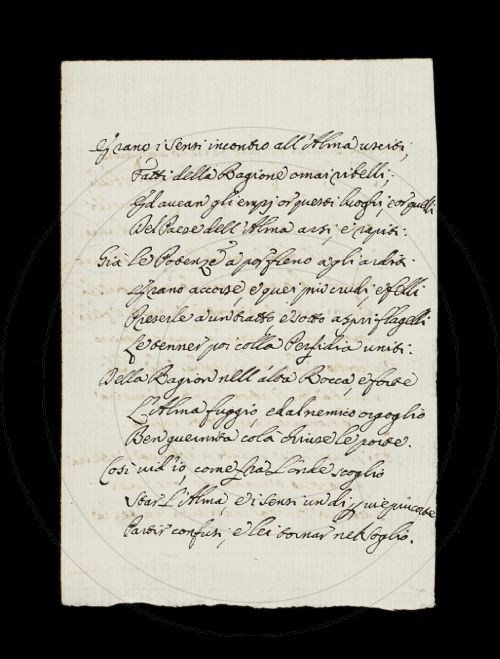 Erano i Sensi incontro all'Alma usciti,
Fatti della Ragione omai ribelli;
Ed avean gli empj or questi luoghi, or quelli
Del Paese dell'Alma arsi, e rapiti.
Già le Potenze a por freno agli arditi
Erano accorse, e quei più crudi, e felli
Preserle a un tratto, e sotto aspri flagelli
Le tenner poi colla Perfidia uniti.
Della Ragion nell'alta Rocca, e forte
L'Alma fuggìo, ed al nemico orgoglio
Ben guernita colà chiuse le porte.
Così vid'io, come fra L'onde scoglio
Star L'Alma, e i Sensi un dì per vie più corte
Partir confusi, e lei tornar nel Soglio.